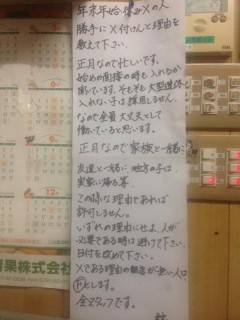 年末年始休みXの人
勝手にX付けんと理由を
教えて下さい。
正月なので忙しいです。
始めの面接の時も入れるか
聞いています。そもそも大型連休
入れない子は採用しません。
なので全員大丈夫として
働いていると思います。
正月なので家族と一緒に?
友達と一緒に、地方の子は
実家に帰る等
この様な理由であれば
許可しません。
いずれの理由にせよ、人が
必要である時は避けて下さい。
日付を改めて下さい。
Xである理由の報告が無い人は
とします。
全スタッフです。
青果株式会